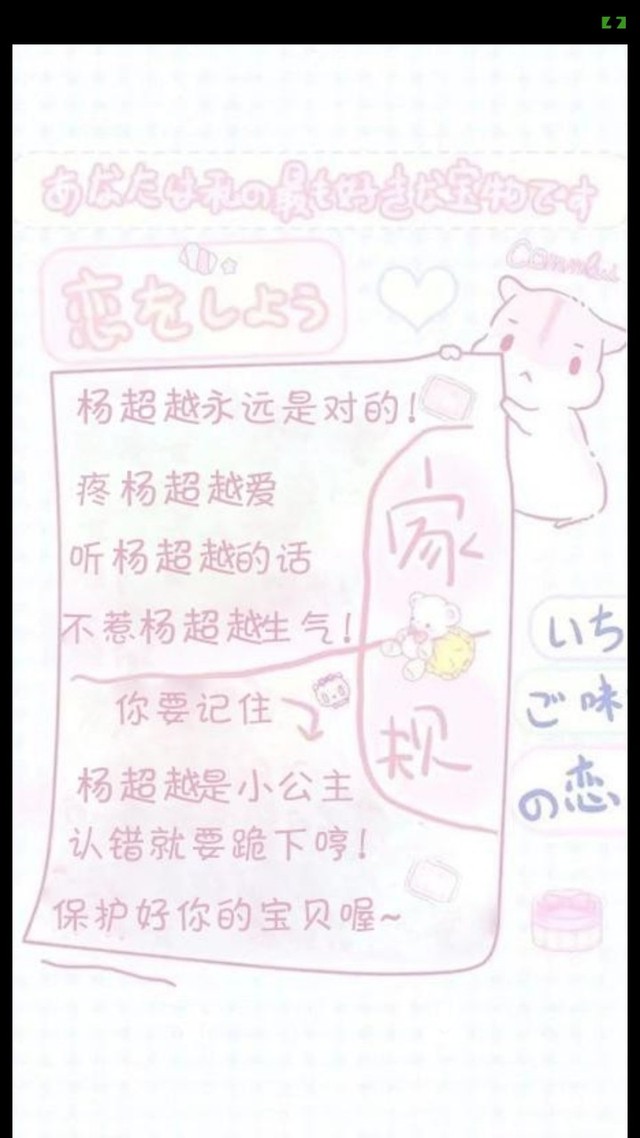 あなたは私の最も好きな宝物です
恋をしよう
杨超越永远是对的!
疼杨超越爱
听杨超越的话
不惹杨超越生气!
家规
你要记住
杨超越是小公主
认错就要跪下哼!
保护好你的宝贝喔~
いち
ご味
の恋